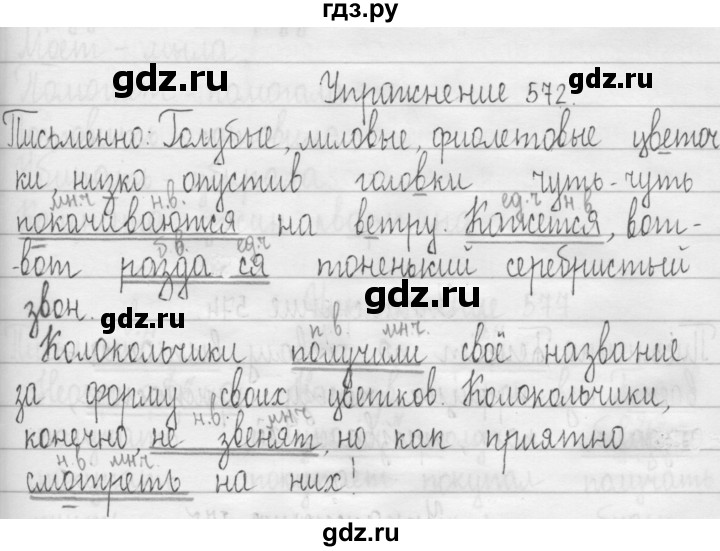 гдз.ру
gdz.ru gdz.ru
Упражнение 572.
Письменно: Голубые, лиловые, фиолетовые цветоч
ки, низко опустив головки чуть-чуть
мн.ч н.в. ед.ч н в
покачиваются на ветру. Кажется, вот-
б.в. ед.ч
-вот разда ся тоненький серебристый
звон. gdz.ru gdz.ru
п в. мн.ч.
Колокольчики получили своё название
за форму своих цветков. Колокольчики,
н.в. мн.ч
конечно, не звенят, но как приятно
н.в мн.ч.
смотреть на них!
gdz.ru gdz.ru
gdz.ru